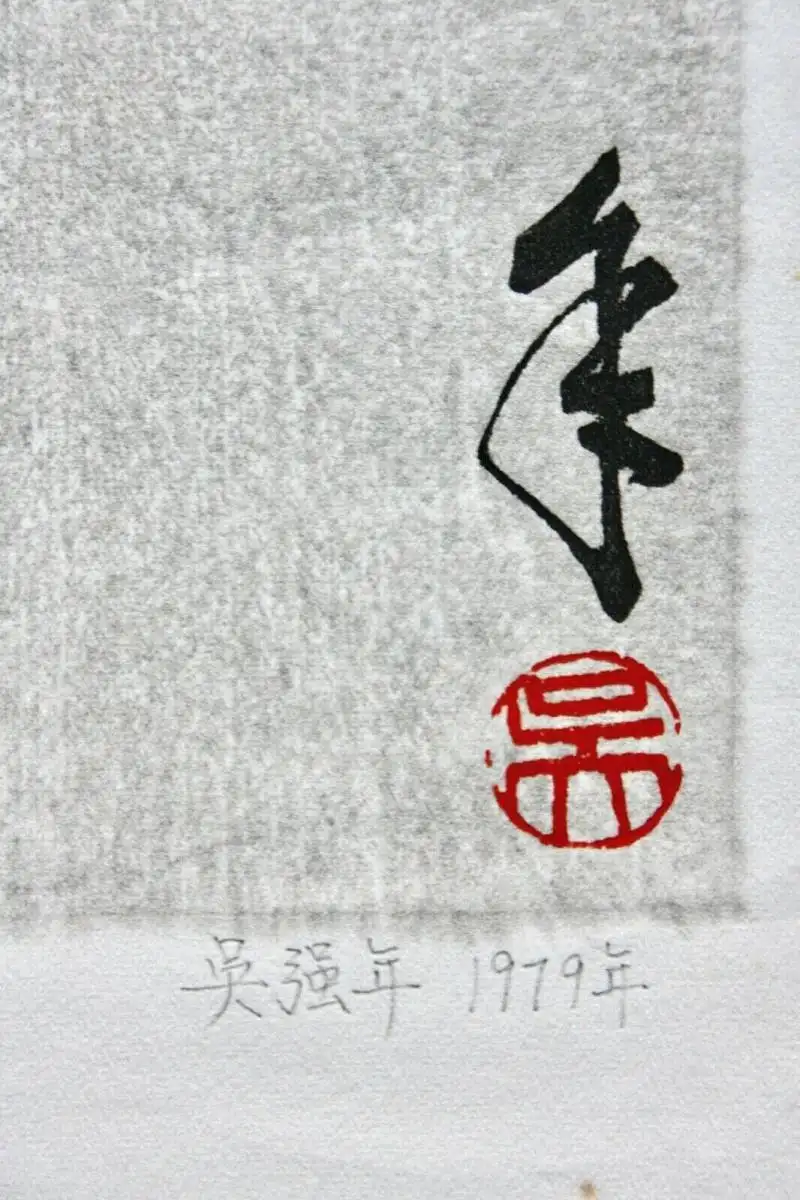 年
吳
吳强年 1979年